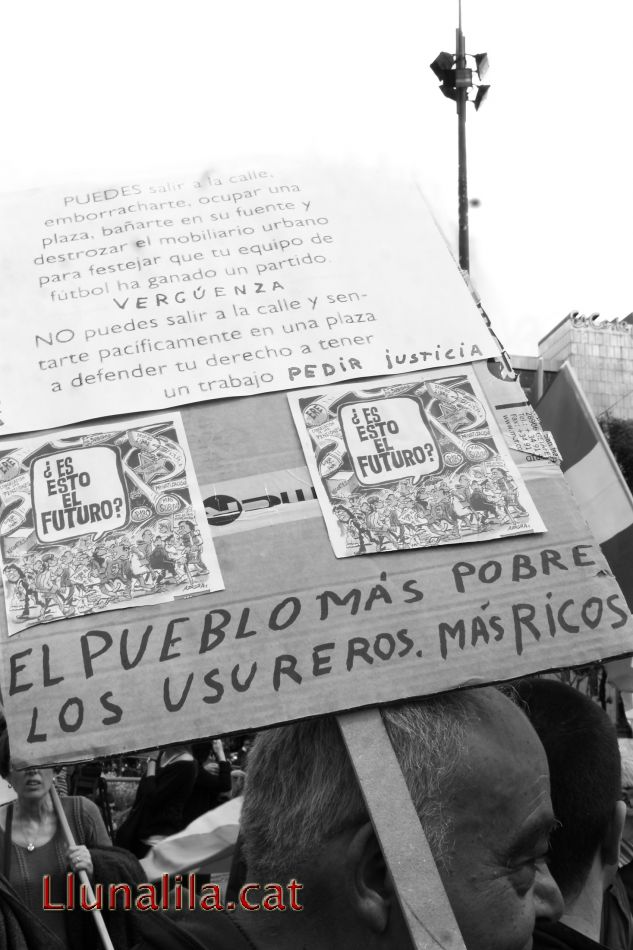 PUEDES salir a la calle,
emborracharte, ocupar una
plaza, bañarte en su fuente y
destrozar el mobiliario urbano
para festejar que tu equipo de
fútbol ha ganado un partido.
VERGÚENZA
NO puedes salir a la calle y sen-
tarte pacíficamente en una plaza
a defender tu derecho a tener
un trabajo PEDIR justicia
¿ES
ESTO
EL
FUTURO?
¿ES
ESTO
EL
FUTURO?
EL PUEBLO MÁS POBRE
LOS USUREROS. MÁS RICOS
Llunalila.cat